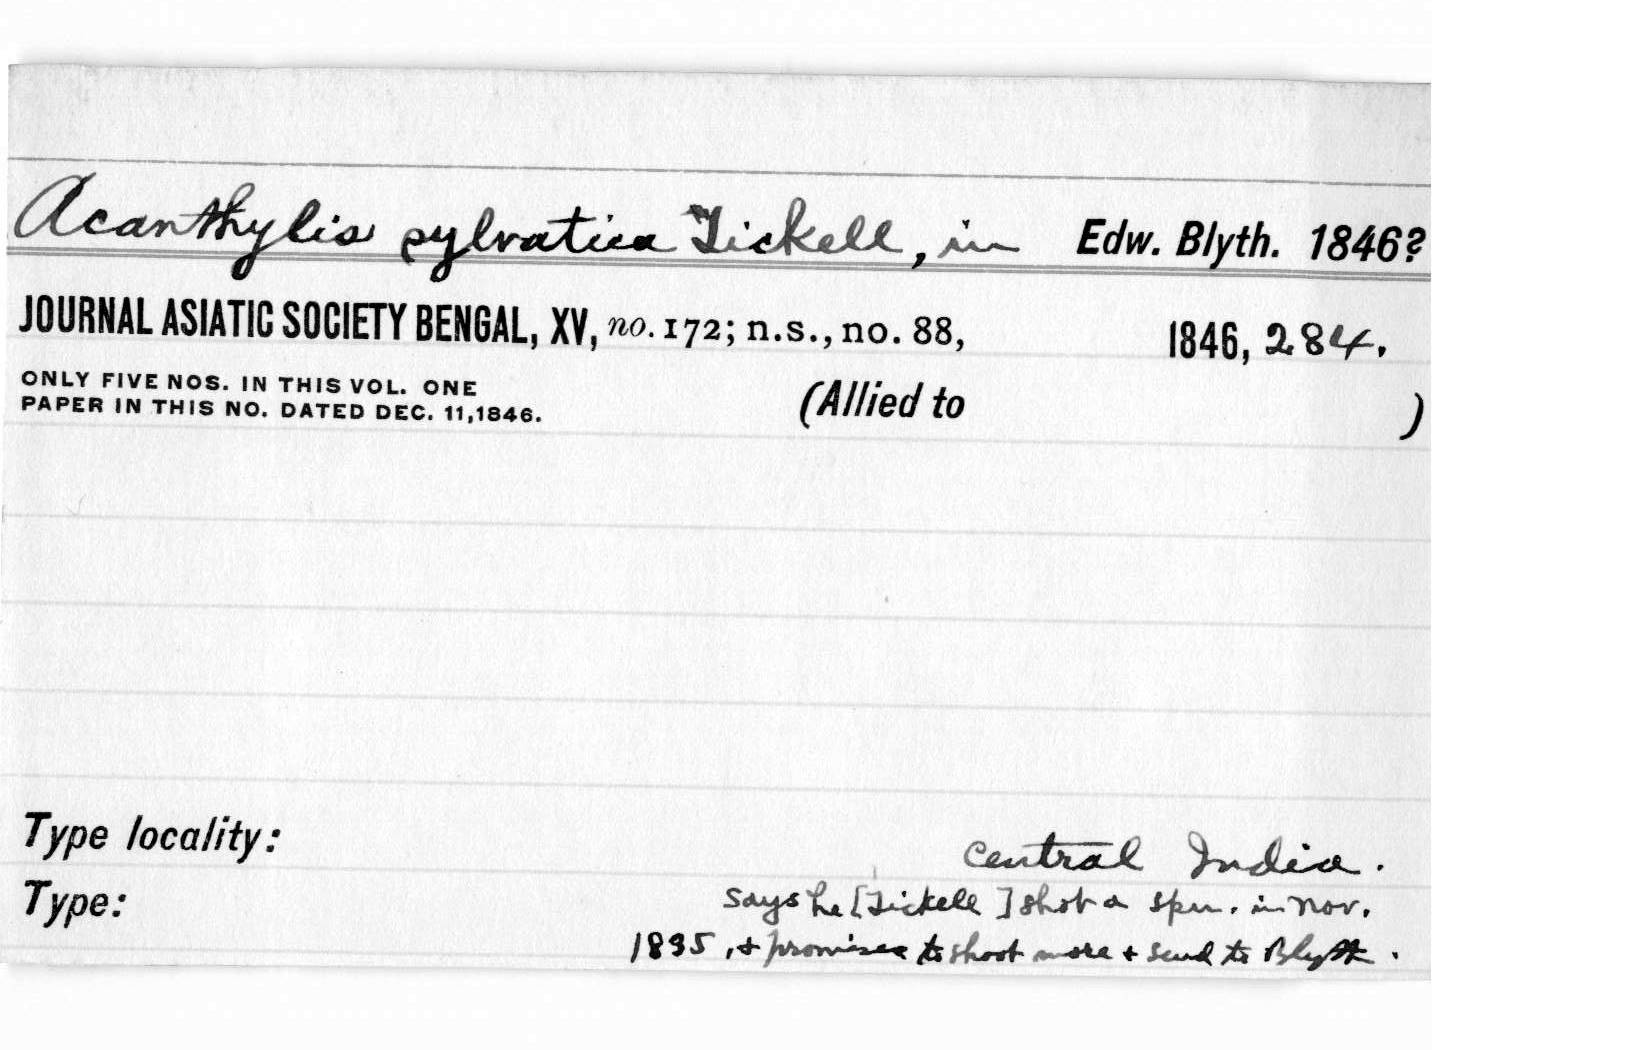 Acanthylis sylvatica Tickell, in Edw. Blyth. 1846?
JOURNAL ASIATIC SOCIETY BENGAL, XV, no. 172; n.s., no. 88, 1846, 284.
ONLY FIVE NOS. IN THIS VOL. ONE
PAPER IN THIS NO. DATED DEC. 11,1846.
(Allied to )
Type locality: Central India.
Type: Says he [Tickell] shot a spm. in Nov.
1835, & promises to shoot more & send to Blyth.